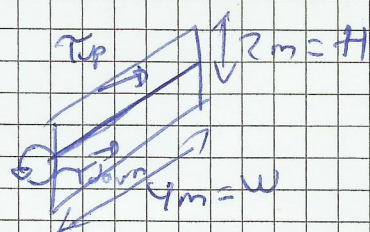 τup
2m = H
τdown
4m = W